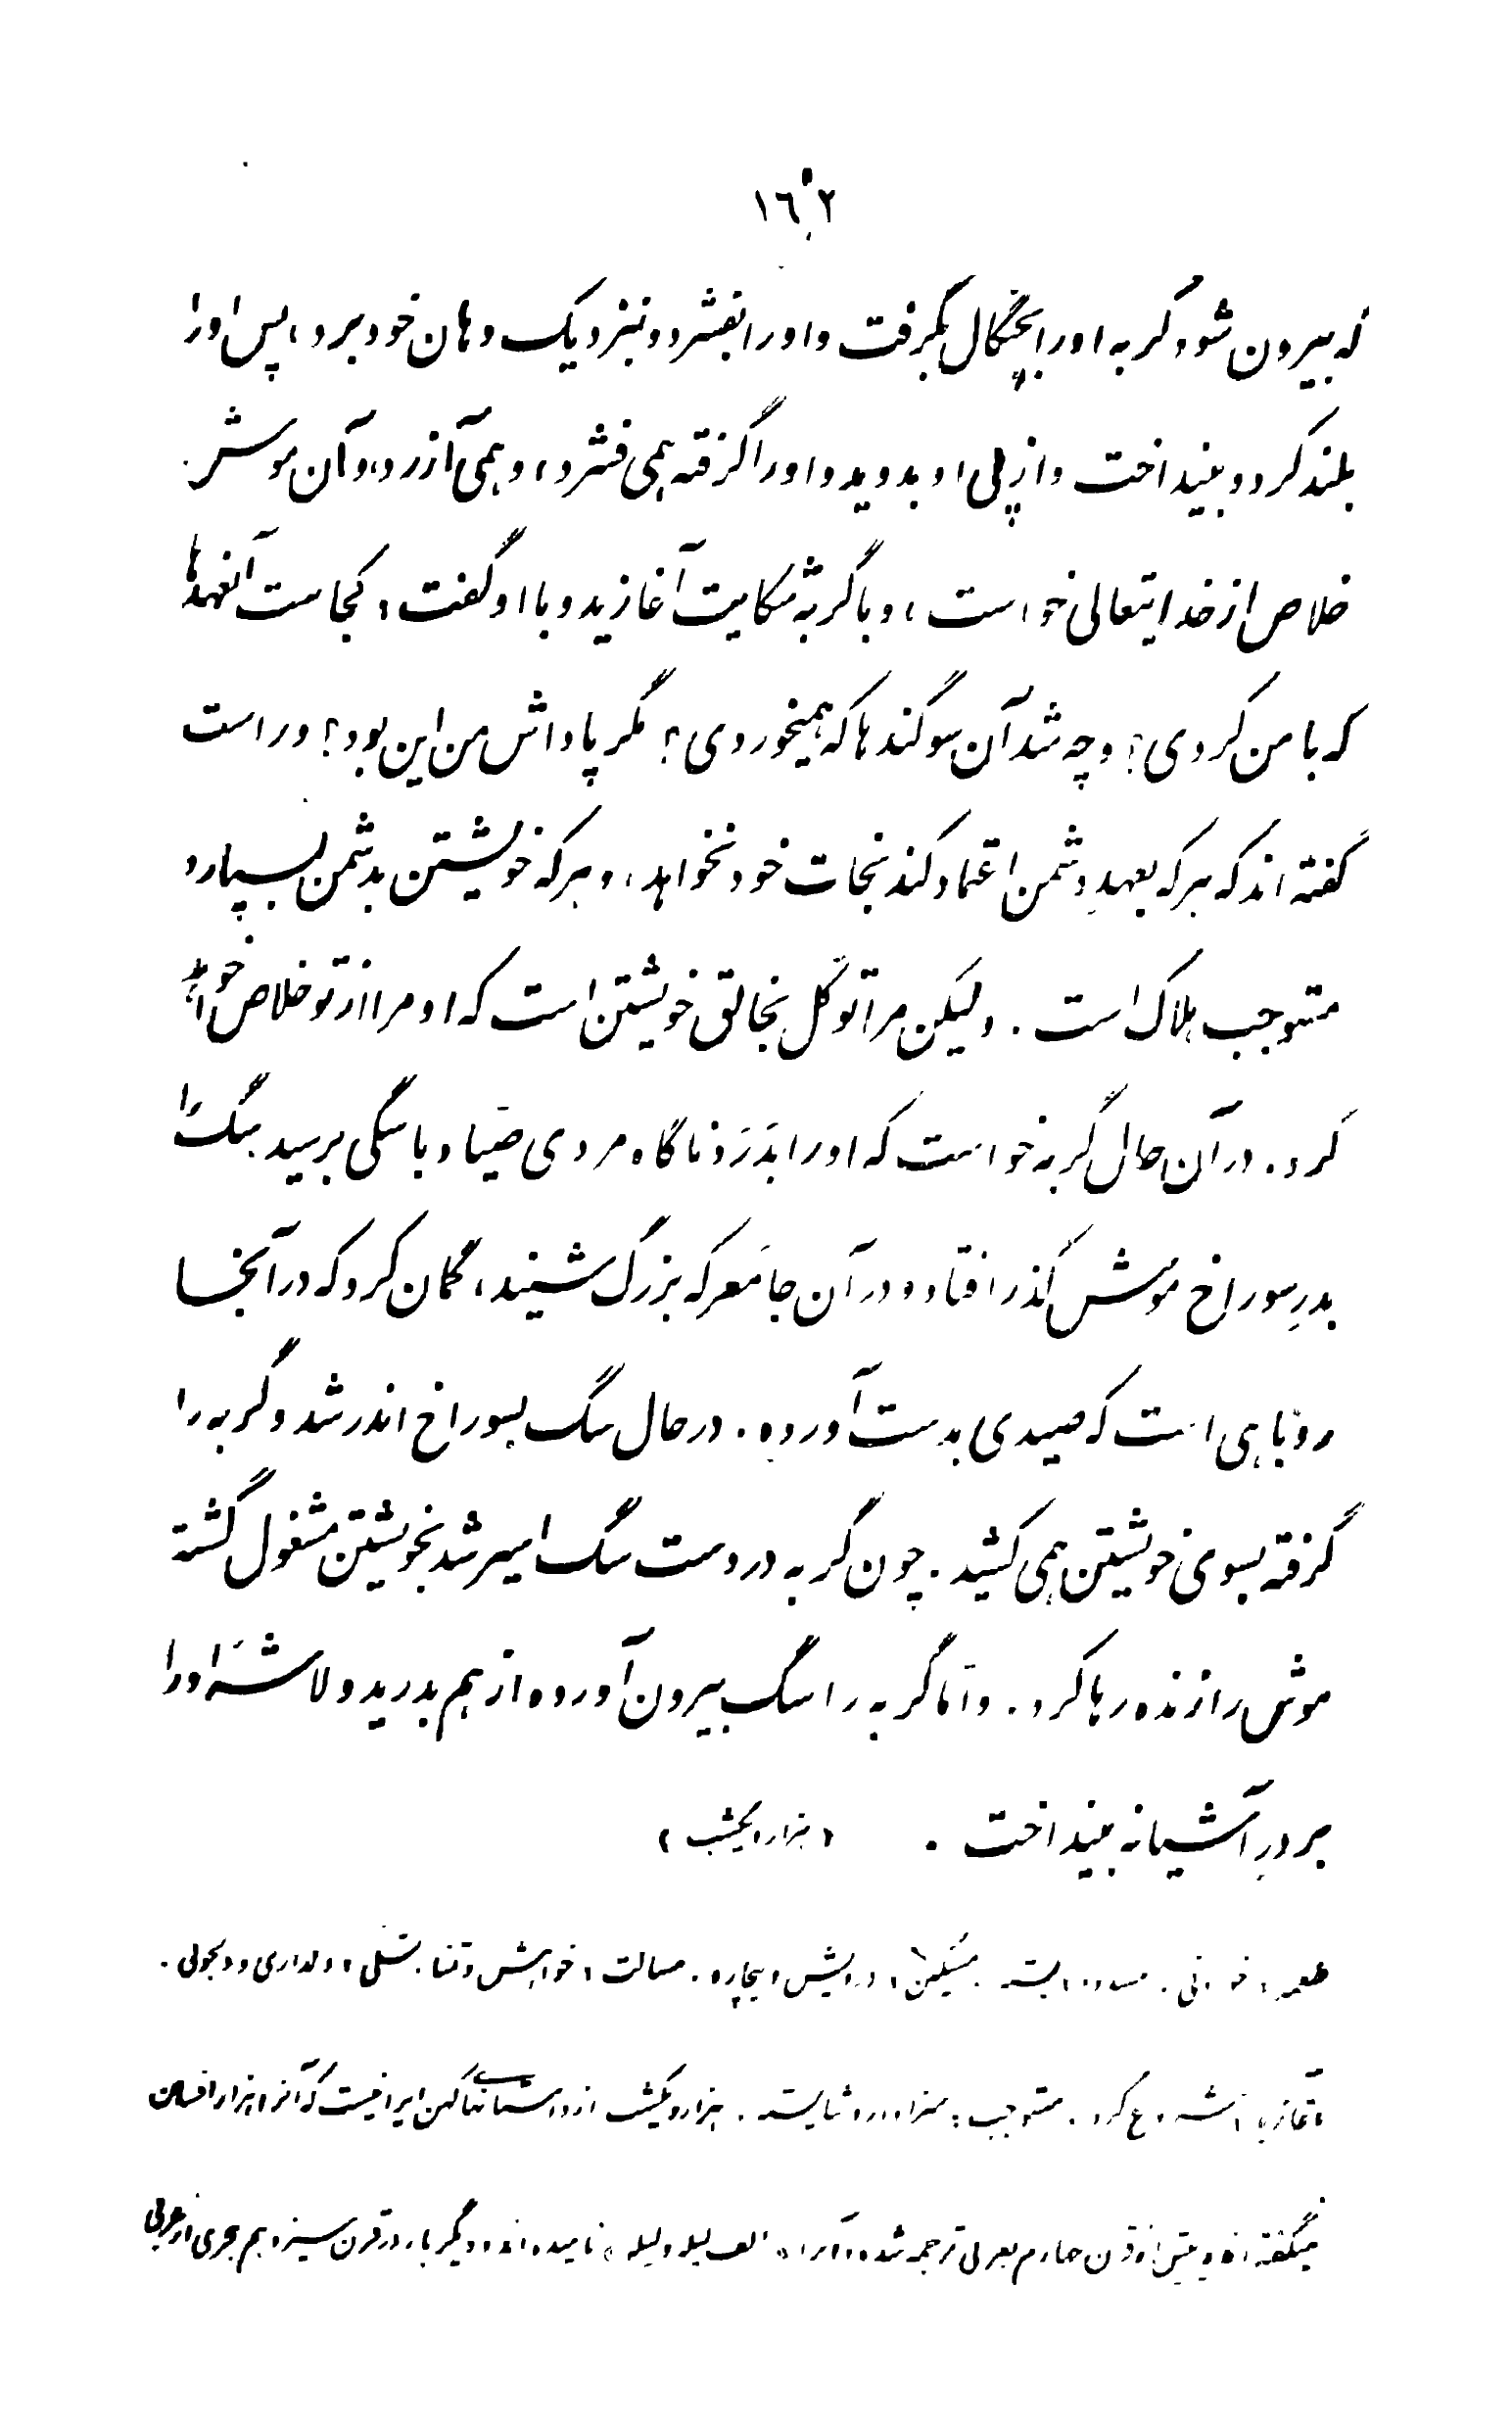 ١٦٢
که بیرون شود گربه اورا بچنگال بگرفت و اورا بفشرد و بنزدیک دهان خود برد، پس اورا
بلند کرد و بینداخت و از پی او بدوید و اورا گرفته همی فشرد، و همی آزرد، و آن موش
خلاص از خدایتعالی خواست، و با گربه شکایت آغازید و با او گفت: کجاست آنعهدها
که با من کردی؟ و چه شد آن سوگندها که همیخوردی؟ مگر پاداش من این بود؟ و راست
گفته اند که هر که بعهدِ دشمن اعتماد کند نجات خود نخواهد، و هر که خویشتن بدشمن بسپارد
مستوجب هلاک است. ولیکن مرا توکّل بخالق خویشتن است که او مرا از تو خلاص خواهد
کرد. در آن حال گربه خواست که اورا بدَرَد ناگاه مردی صیّاد با سگی برسید سگ را
بدرِ سوراخ موش گذر افتاد و در آن جا معرکه بزرگ شنید، گمان کرد که در آنجا
روباهی است که صیدی بدست آورده. در حال سگ بسوراخ اندر شد و گربه را
گرفته بسوی خویشتن همی کشید. چون گربه در دست سگ اسیر شد بخویشتن مشغول گشته
موش را زنده رها کرد. و امّا گربه را سگ بیرون آورده از هم بدرید و لاشهٔ اورا
بر درِ آشیانه بینداخت. (هزار و یکشب)
مسکین: درویش و بیچاره. مسالت: خواهش و تمنا. تسلی: دلداری و دلجوئی.
آغازید: شروع کرد. مستوجب: سزاوار و شایسته. هزار و یکشب از داستانهای کهن ایرانیست که آنرا هزار افسان
میگفته اند و پیش از قرن چهارم بعربی ترجمه شده و آنرا «الف لیله و لیله» نامیده اند و دیگر بار در قرن سیزدهم هجری از عربی